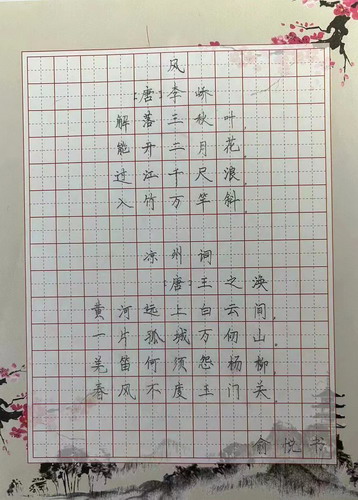 风
[唐]李峤
解落三秋叶，
能开二月花。
过江千尺浪，
入竹万竿斜。
凉州词
[唐]王之涣
黄河远上白云间，
一片孤城万仞山。
羌笛何须怨杨柳，
春风不度玉门关。
俞悦书